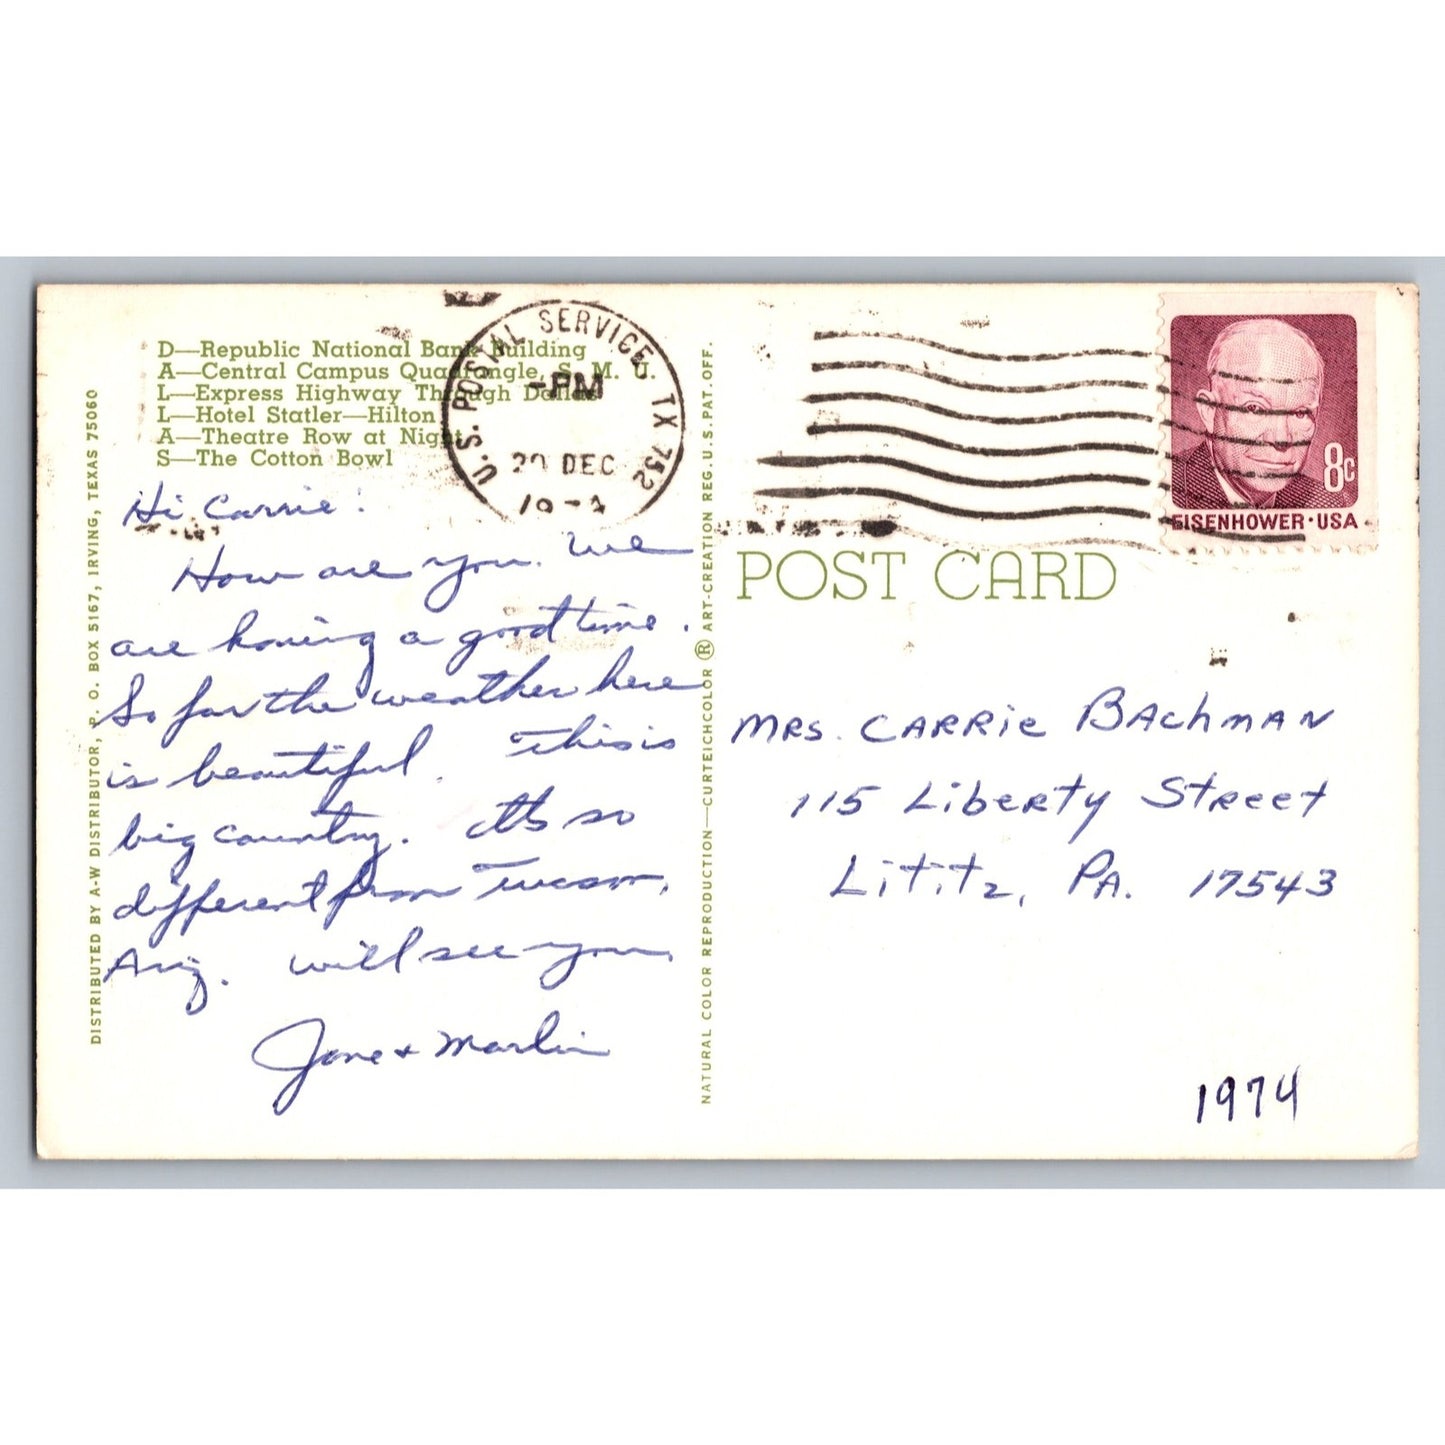 D—Republic National Bank Building
A—Central Campus Quadrangle, S. M. U.
L—Express Highway Through Dallas
L—Hotel Statler—Hilton
A—Theatre Row at Night
S—The Cotton Bowl
U.S. POSTAL SERVICE, TX 752
PM
DEC
Hi Carrie!
How are you. We
are having a good time.
So far the weather here
is beautiful. This is
big country. It's so
different from Tucson,
Ariz. Will see you,
Jane + Marlin
DISTRIBUTED BY A-W DISTRIBUTOR, P. O. BOX 5167, IRVING, TEXAS 75060
NATURAL COLOR REPRODUCTION—CURTEICHCOLOR ® ART-CREATION REG. U.S. PAT. OFF.
8c
EISENHOWER·USA
POST CARD
MRS. CARRIE BACHMAN
115 LIBERTY STREET
LITITZ, PA. 17543
1974